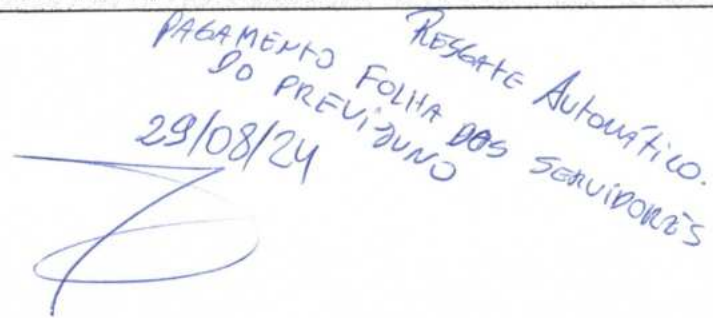 RESGATE AUTOMÁTICO.
PAGAMENTO FOLHA DOS SERVIDORES
DO PREVIJUNO
29/08/24